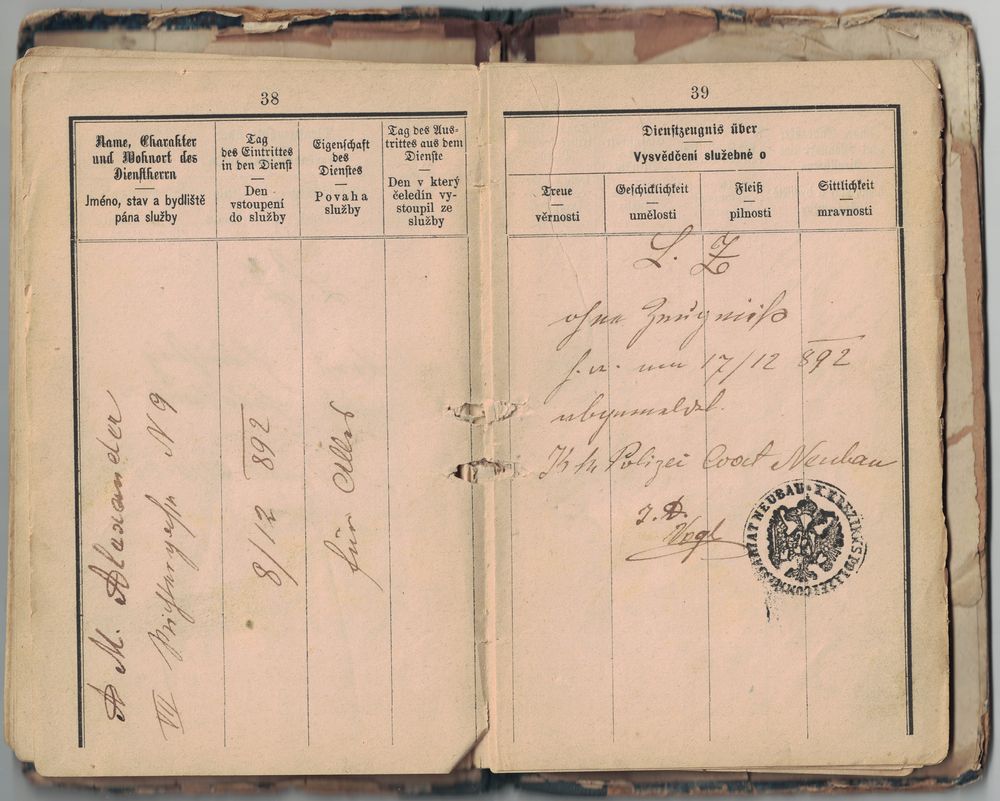 38
Name, Charakter
und Wohnort des
Dienstherrn
Jméno, stav a bydliště
pána služby
Tag
des Eintrittes
in den Dienst
Den
vstoupení
do služby
Eigenschaft
des
Dienstes
Povaha
služby
Tag des Aus-
trittes aus dem
Dienste
Den v který
čeledín vy-
stoupil ze
služby
A M. Alexander
VII N 9
8/12 892
für Alles
39
Dienstzeugnis über
Vysvědčení služebné o
Treue
věrnosti
Geschicklichkeit
umělosti
Fleiß
pilnosti
Sittlichkeit
mravnosti
L. Z
ohne Zeugniß
17/12 892
abgemeldet.
K k Polizei Coat Neubau
Vogl
K.K. BEZIRKS POLIZEI COMMISSARIAT NEUBAU